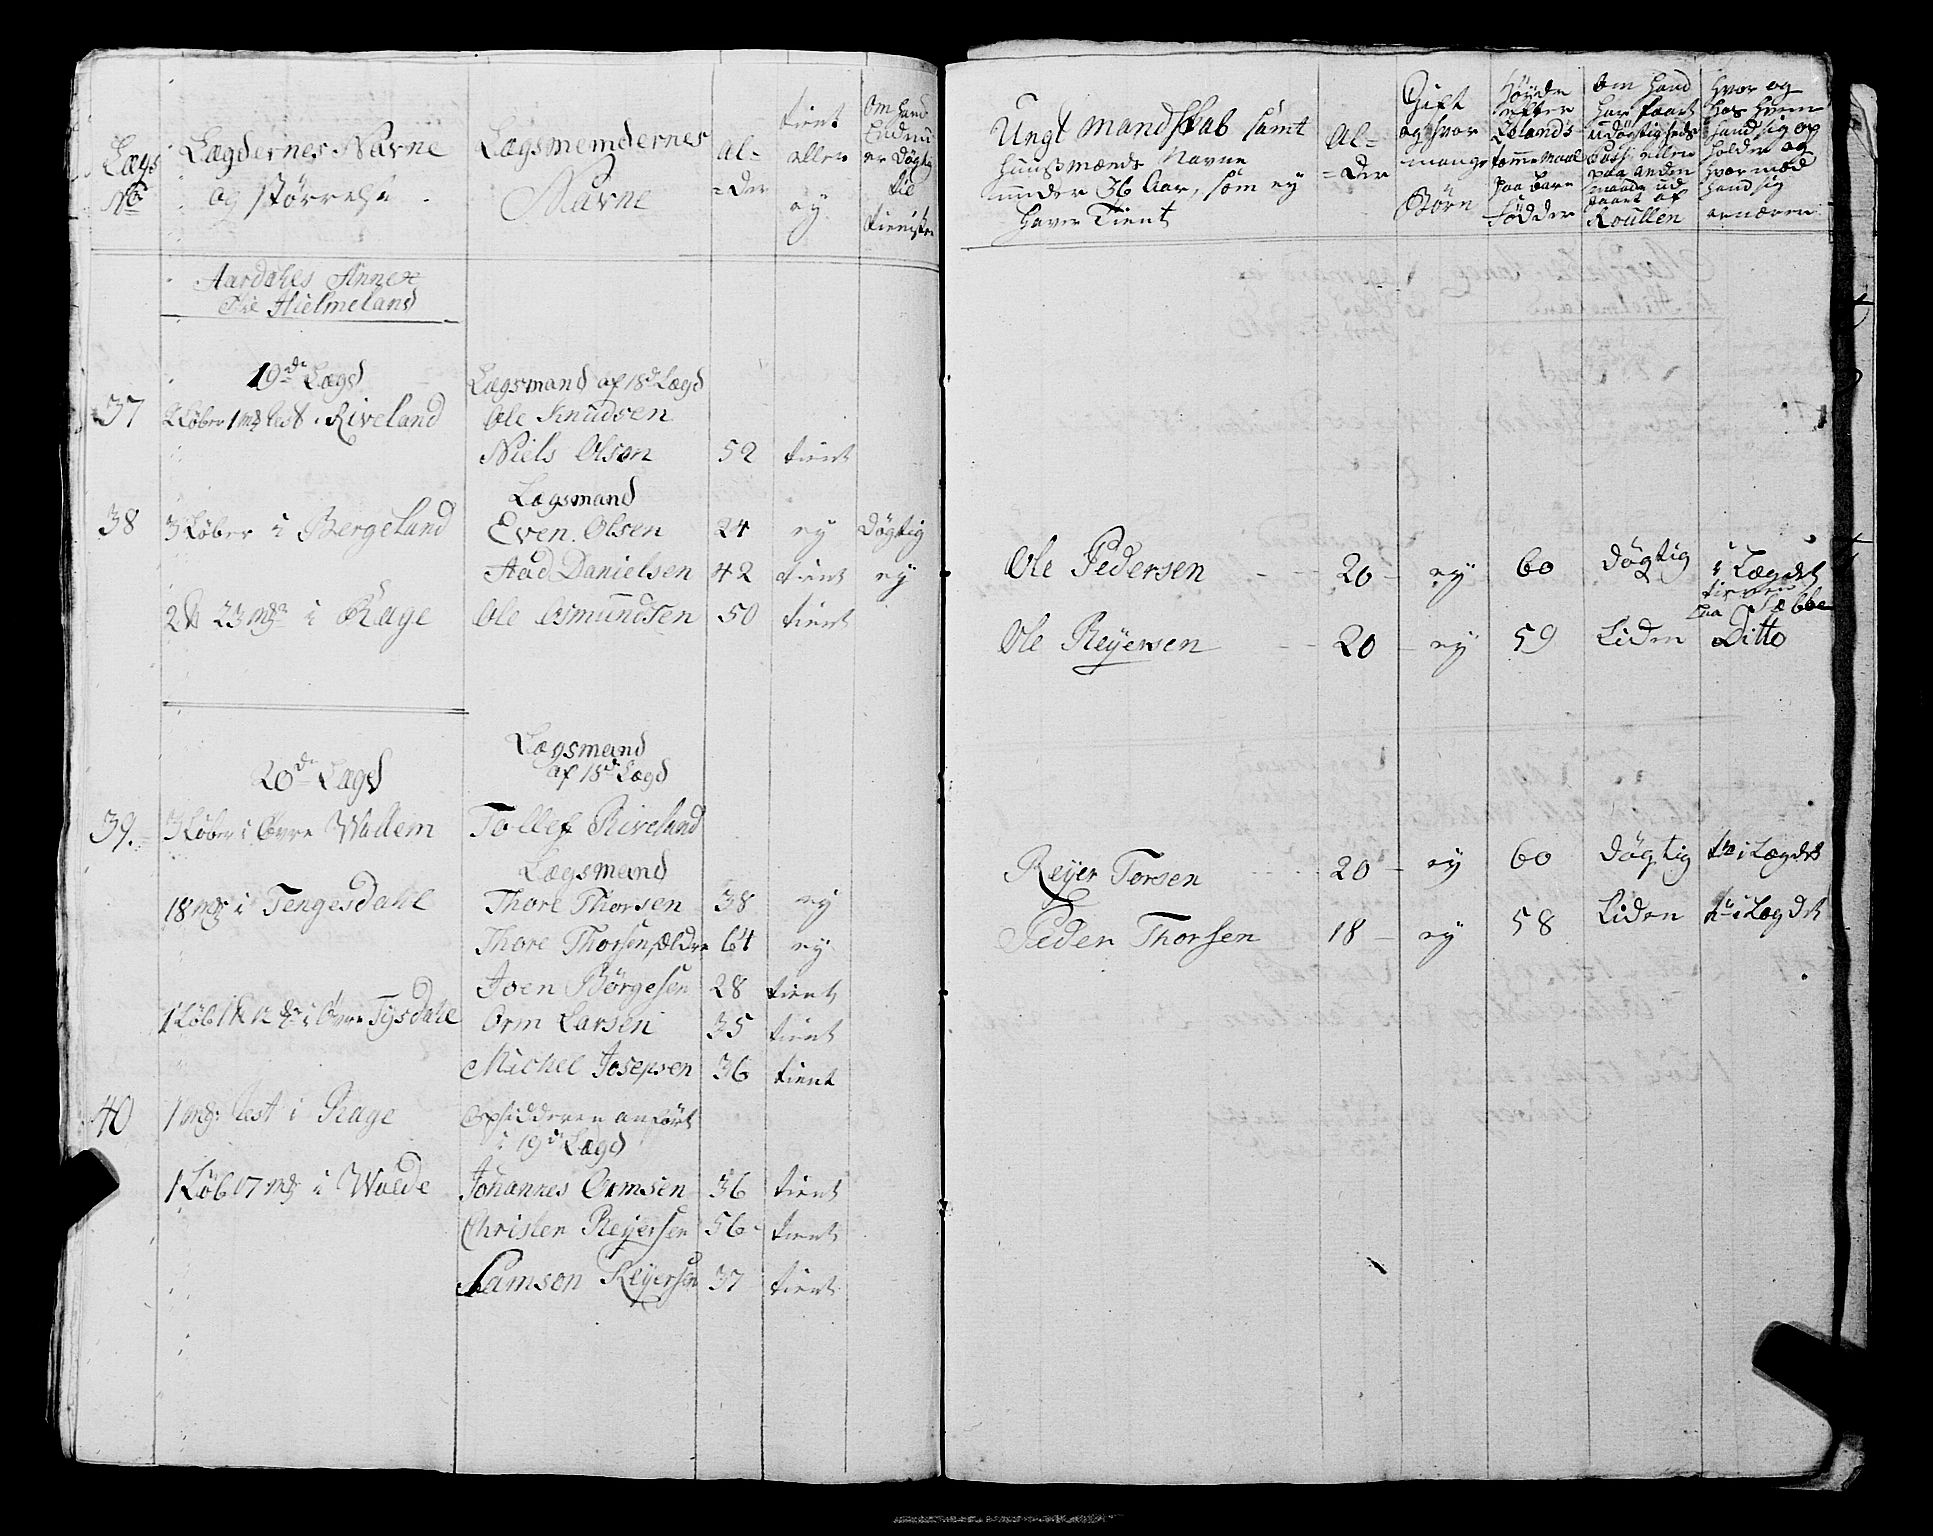 Lægs
No
Lægdernes Navne
og størrelse
Lægsmændernes
Navne
Al-
=der
tient
eller
ey
Om hand
Endnu
er Døgtig
til
tieniste
Aardahls Annex
Til Hielmeland
19de Lægd
Lægsmand af 18de Lægd
37 2 Løber 1 mk lest i Riveland Ole Knudsen
Niels Olson 52 tient
Lægsmand
38 3 Løber i Bergeland Even Olsen 24 ey Døgtig
Aad Danielsen 42 tient ey
23 mk i Rage Ole Osmundsen 50 tient
20de Lægd
Lægsmand
af 18de Lægd
39. 3 Løber i Øvre Wadem Tollef Riveland
Lægsmand
18 mk i Tengesdahl Thore Thorsen 38 ey
Thore Thorsen ældre 64 ey
Joen Børgesen 28 tient
1 Løb i Øvre Tysdahl Orm Larsen 35 tient
Michel Josepsen 36 tient
40 1 mk lest i Rage Opsidderen anført
i 19de Lægd
1 Løb 17 mk i Walde Johannes Ormsen 36 tient
Christen Reyersen 56 tient
Samson Reyersen 37 tient
Ungt Mandskab samt
Huusmænds Navne
under 36 Aar, som ey
haver Tient
Al=
=der
Gift
og hvor
mange
Børn
Høyde
efter
Siælands
tomme Maal
paa bare
fødder
Om hand
har faaet
udøgtigheds
Pass eller
paa anden
maade ud
gaaet af
Roullen
Hvor og
hos hvem
hand sig op
holder og
hvormed
hand sig
ernærer
Ole Pedersen 20 ey 60 Døgtig i Lægdet
tienner
paa Sæbbe
Ole Reyersen 20 ey 59 Liden Ditto
Reyer Torsen 20 ey 60 Døgtig hr i Lægdet
Peder Thorsen 18 ey 58 Liden hr i Lægdet